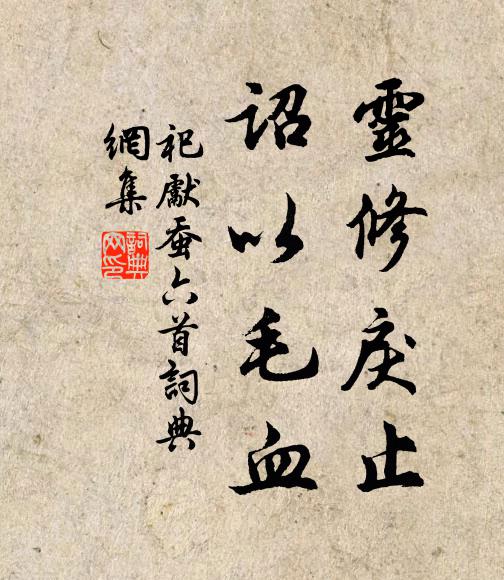 靈修戾止
詔以毛血
祀獻蚕六首詞典
網集
詞典
網印